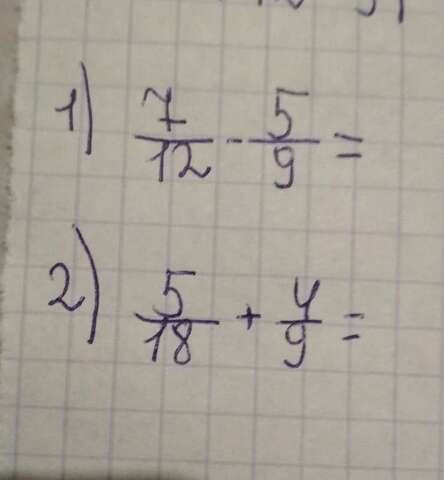 1) 7/12 - 5/9 =
2) 5/18 + 4/9 =